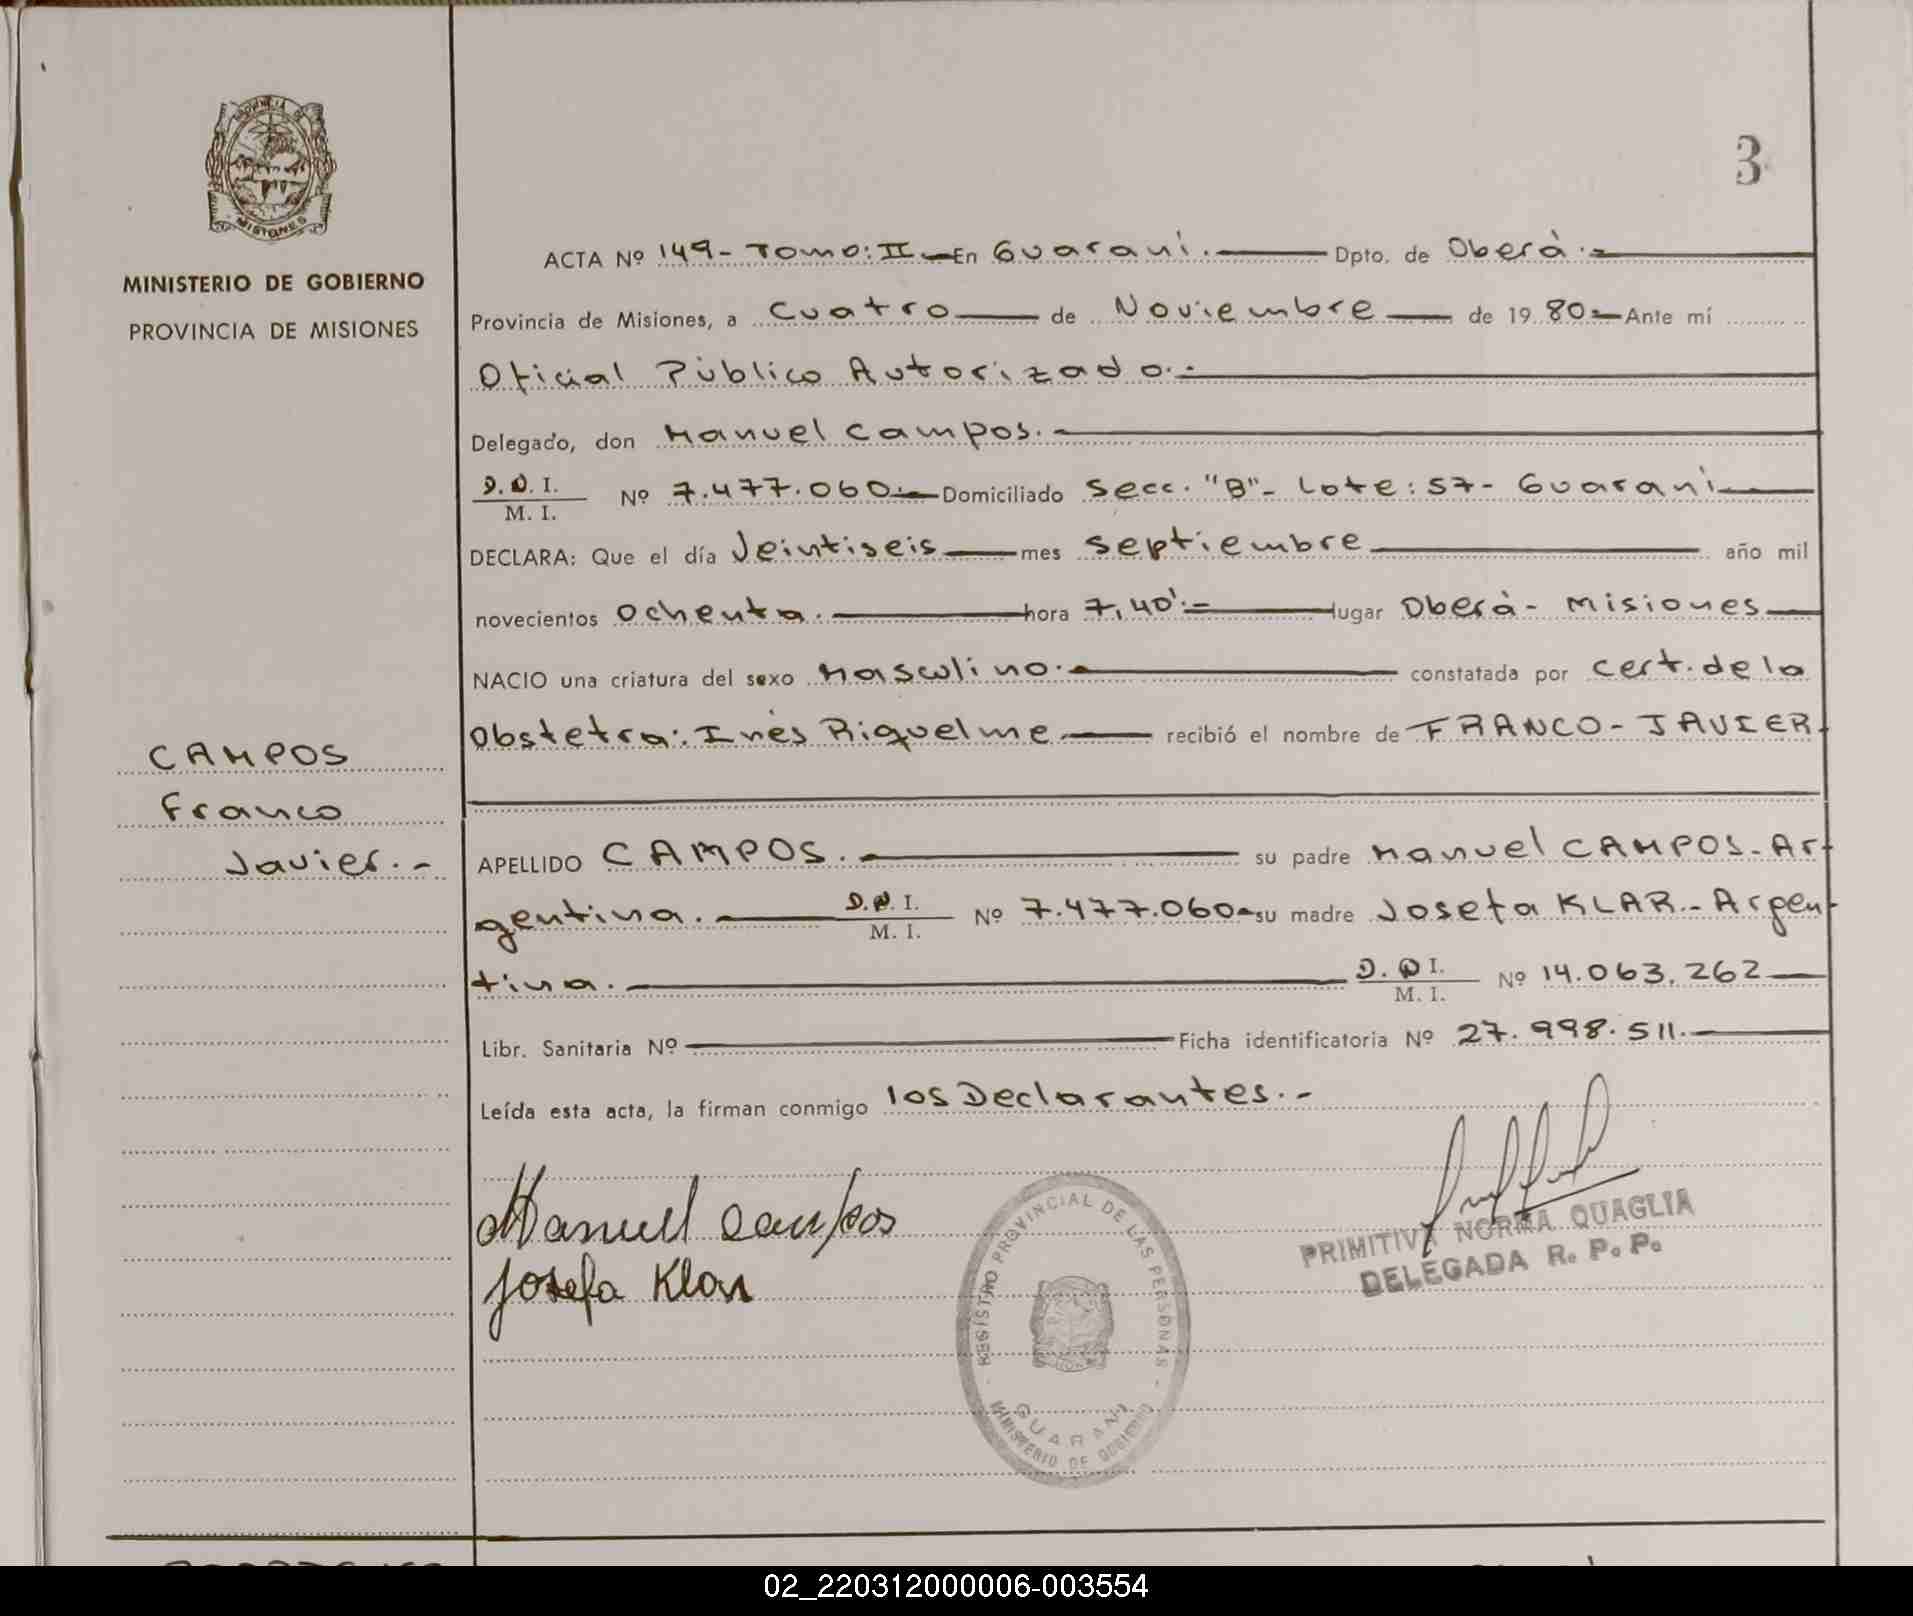 PROVINCIA DE
MISIONES
MINISTERIO DE GOBIERNO
PROVINCIA DE MISIONES
3
ACTA Nº 149- Tomo: II - En Guaraní. Dpto. de Oberá.-
Provincia de Misiones, a cuatro de Noviembre de 19 80.- Ante mí
Oficial Público Autorizado.-
Delegado, don Manuel Campos.-
D.N.I.
M. I. Nº 7.477.060.- Domiciliado Secc. "B"- Lote: 57- Guaraní
DECLARA: Que el día Veintiseis mes Septiembre año mil
novecientos Ochenta. hora 7,40'.- lugar Oberá- Misiones
NACIO una criatura del sexo Masculino.- constatada por cert. de la
Obstetra: Inés Riquelme recibió el nombre de FRANCO-JAVIER.
CAMPOS
Franco
Javier.-
APELLIDO CAMPOS. su padre Manuel CAMPOS- Ar-
gentina. D.N.I.
M. I. Nº 7.477.060- su madre Josefa KLAR.- Argen-
tina. D.N.I.
M. I. Nº 14.063.262
Libr. Sanitaria Nº Ficha identificatoria Nº 27.998.511.-
Leída esta acta, la firman conmigo los Declarantes.-
Manuel Campos
Josefa Klar
REGISTRO PROVINCIAL DE LAS PERSONAS
GUARANI
MINISTERIO DE GOBIERNO
PRIMITIVA NORMA QUAGLIA
DELEGADA R. P. P.
02_220312000006-003554